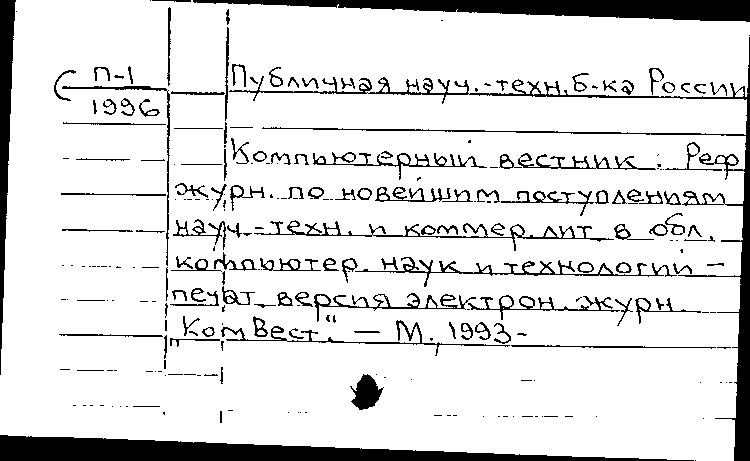 С П-1
1996
Публичная науч.-техн. б-ка России
Компьютерный вестник : Реф
журн. по новейшим поступлениям
науч.-техн. и коммер. лит. в обл.
компьютер. наук и технологий –
печат. версия электрон. журн.
"КомВест." – М., 1993-